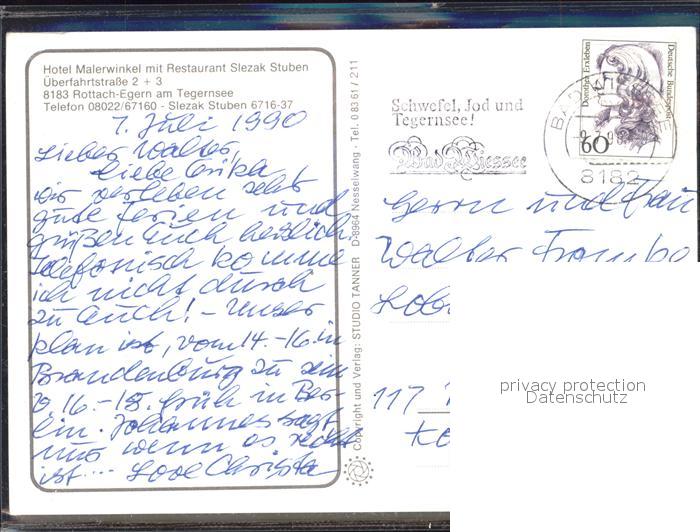 Hotel Malerwinkel mit Restaurant Slezak Stuben
Überfahrtstraße 2 + 3
8183 Rottach-Egern am Tegernsee
Telefon 08022/67160 - Slezak Stuben 6716-37
7. Juli 1990
Lieber Walter,
Liebe Erika
wir verleben sehr
gute Ferien und
grüßen Euch herzlich.
Telefonisch komme
ich nicht durch
zu Euch! - Unser
Plan ist, vom 14.-16. in
Brandenburg zu sein
16.-18. früh in Ber-
lin. Johannes sagt
uns wenn es recht
ist... Love Christa
Copyright und Verlag: STUDIO TANNER D-8964 Nesselwang · Tel. 0 83 61 / 211
Schwefel, Jod und
Tegernsee!
Bad Wiessee
Dorothea Erxleben
Deutsche Bundespost
60
BAD
8182
Herrn und Frau
Walter
117
privacy protection
Datenschutz